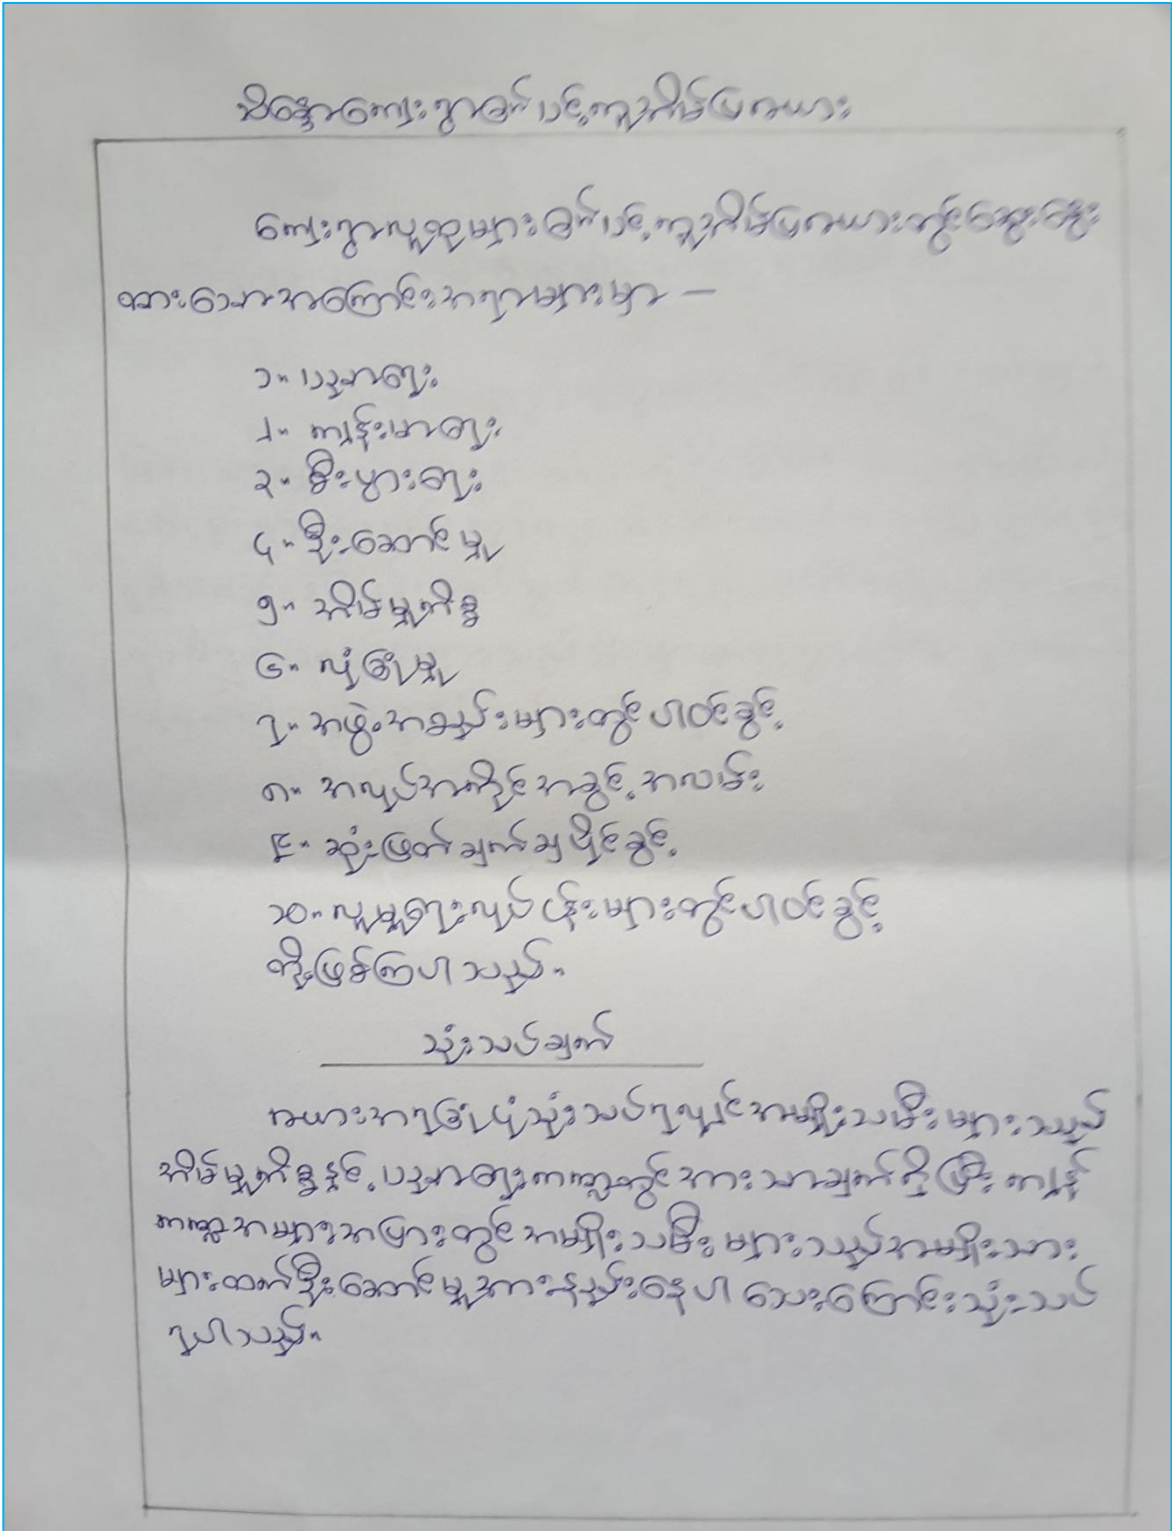 သိန္နောကျေးရွာခြုံငုံကဏ္ဍအိမ်ပြဇယား
ကျေးရွာလူထုများ တွင်ဆွေးနွေး
ထားသောအကြောင်းအရာများမှာ —
၁။ ပညာရေး
၂။ ကျန်းမာရေး
၃။ စီးပွားရေး
၄။ ဦးဆောင်မှု
၅။ အိမ်မှုကိစ္စ
၆။ လုံခြုံမှု
၇။ အဖွဲ့အစည်းများတွင်ပါဝင်ခွင့်
၈။ အလုပ်အကိုင်အခွင့်အလမ်း
၉။ ဆုံးဖြတ်ချက်ချပိုင်ခွင့်
၁၀။ လူမှုရေးလုပ်ငန်းများတွင်ပါဝင်ခွင့်
တို့ဖြစ်ကြပါသည်။
သုံးသပ်ချက်
ဇယားအရခြုံငုံသုံးသပ်ရလျှင်အမျိုးသမီးများသည်
အိမ်မှုကိစ္စနှင့်ပညာရေးကဏ္ဍတွင်အားသာချက်ရှိပြီးကျန်
ကဏ္ဍအများအပြားတွင်အမျိုးသမီးများသည်အမျိုးသား
များထက်ဦးဆောင်မှုအားနည်းနေပါသေးကြောင်းသုံးသပ်
ရပါသည်။